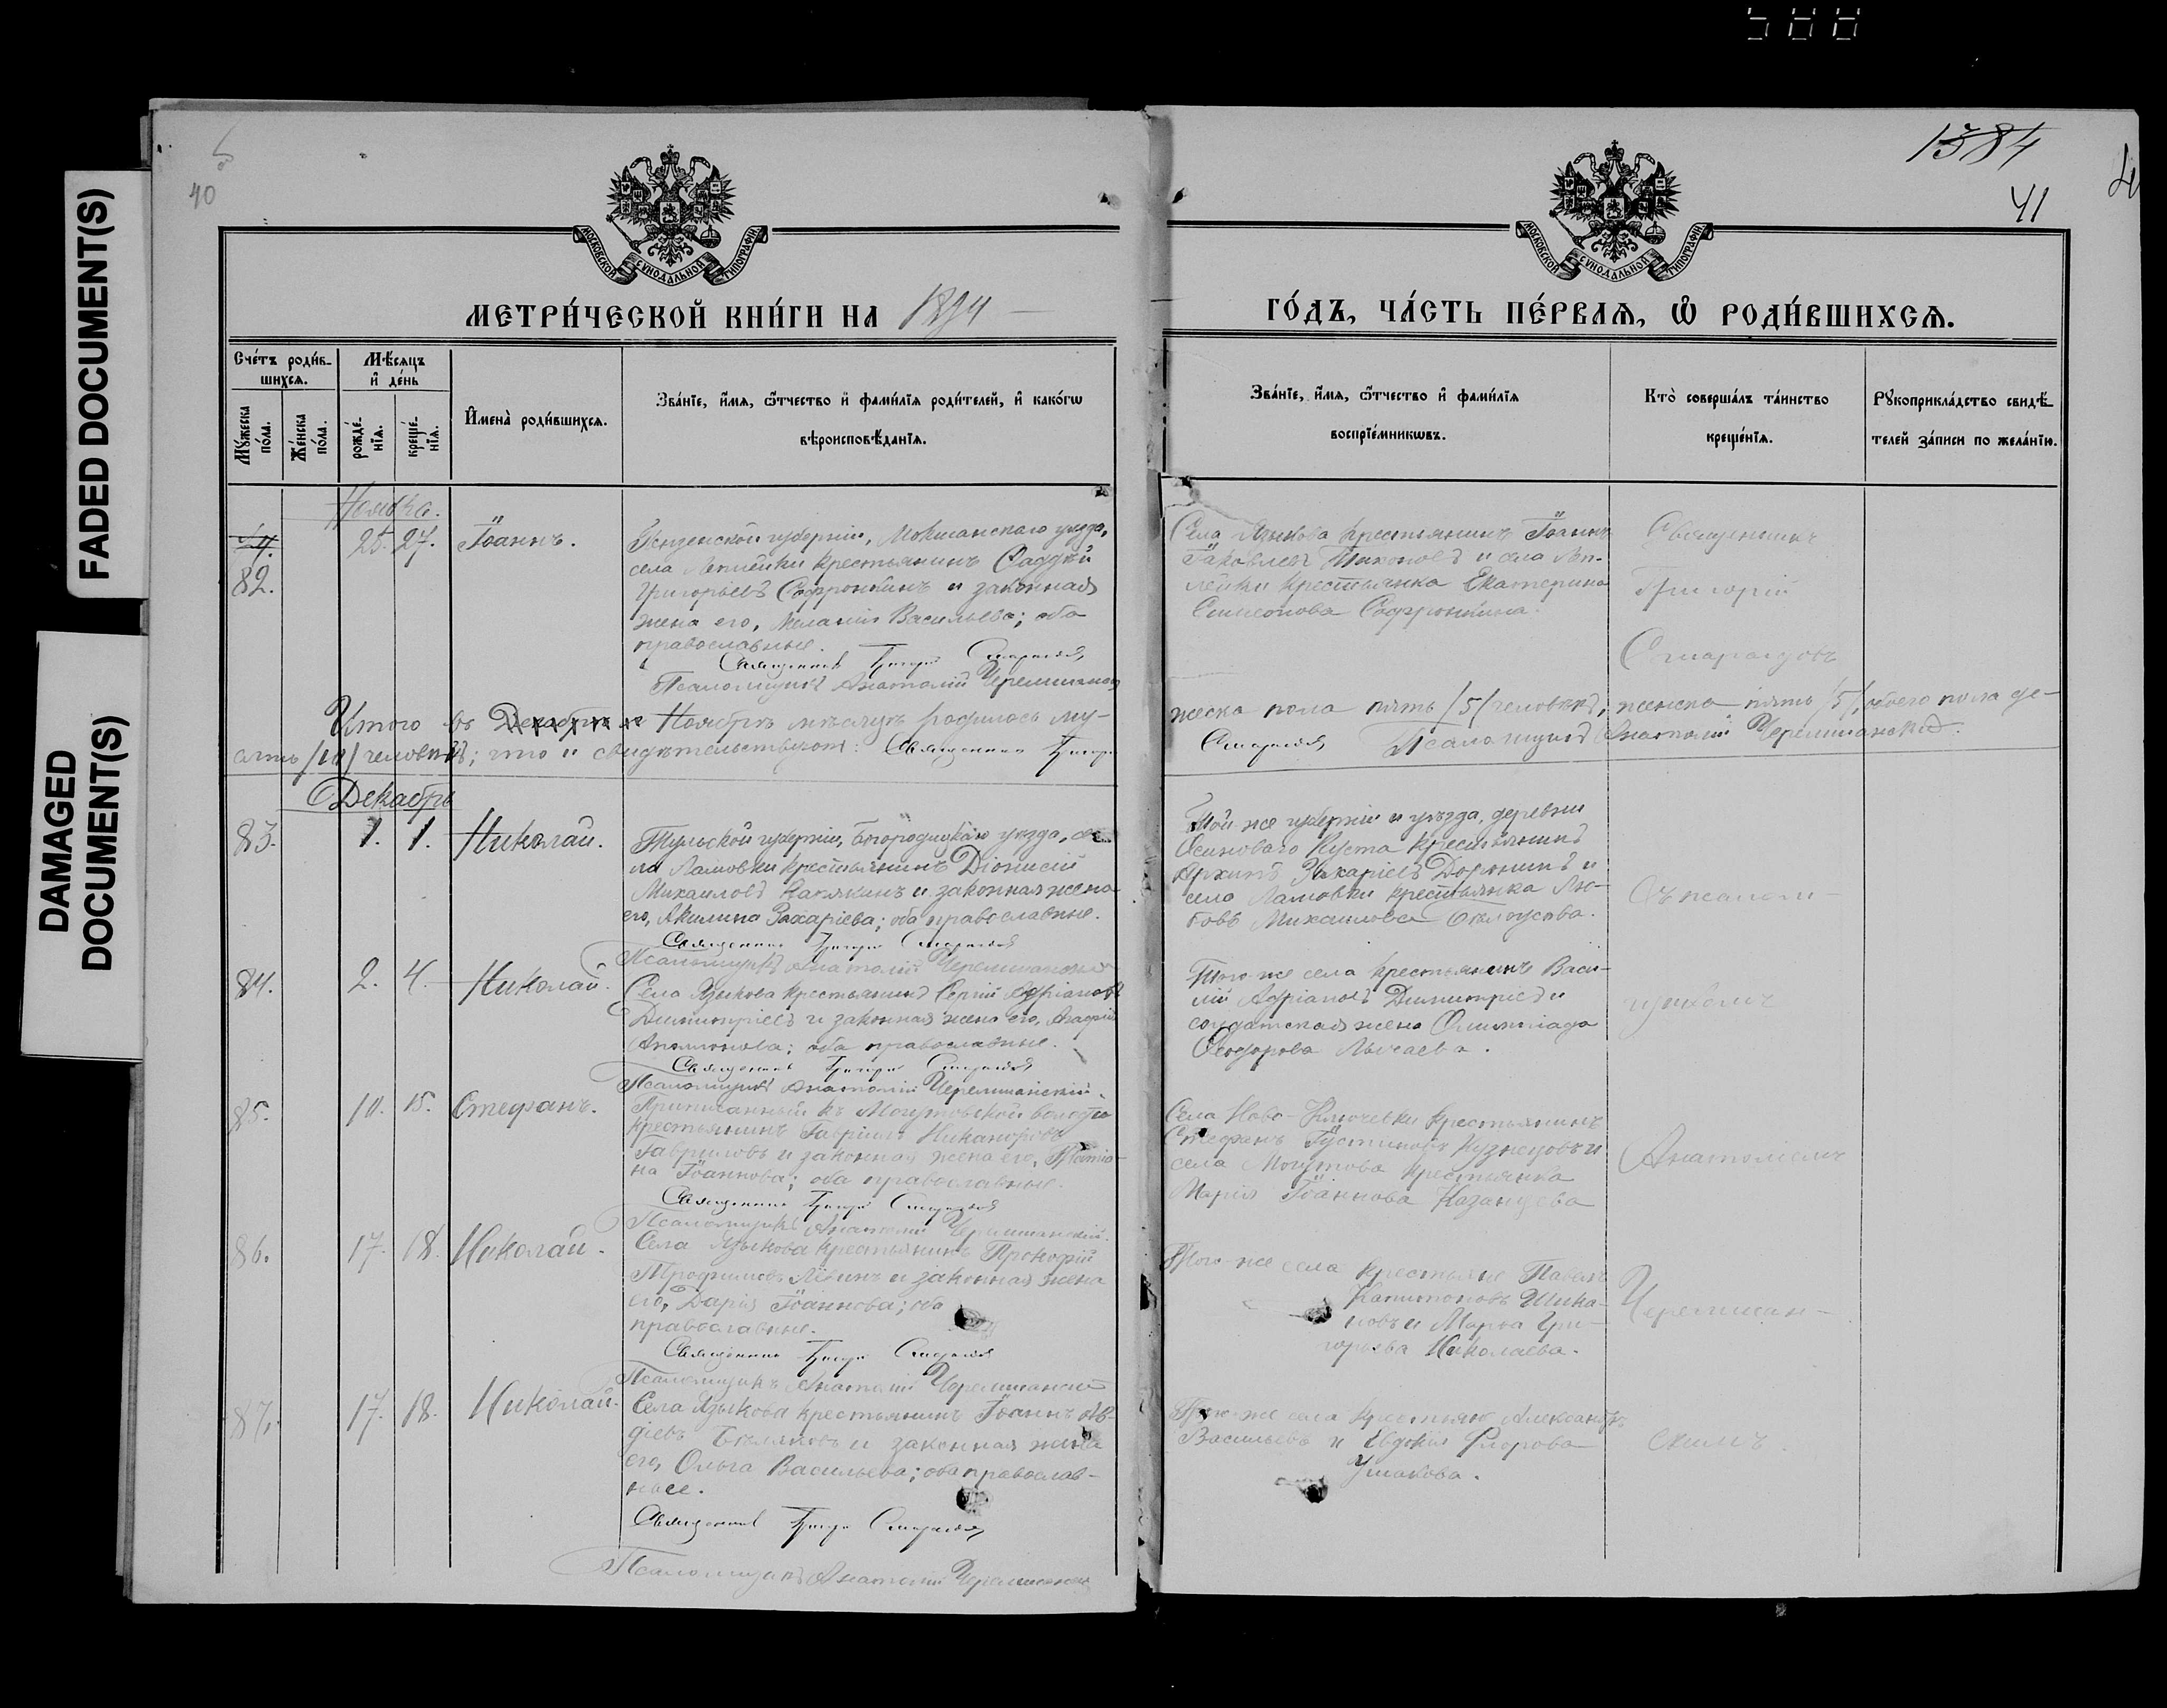 588
FADED DOCUMENT(S)
DAMAGED
DOCUMENT(S)
40
1384
41
МОСКОВСКОЙ СѴНОДАЛЬНОЙ ТИПОГРАФІИ
МОСКОВСКОЙ СѴНОДАЛЬНОЙ ТИПОГРАФІИ
МЕТРИ́ЧЕСКОЙ КНИ́ГИ НА 1894
ГО́ДЪ, ЧА́СТЬ ПЕ́РВАѦ, Ѿ РОДИ́ВШИХСѦ.
Сче́тъ роди́в-
шихсѧ.
Мѣ́сѧцъ
и҆ де́нь
Мꙋ́жеска по́ла.
Же́нска по́ла.
рожде́-
нїѧ.
креще́-
нїѧ.
И҆мена̀ роди́вшихсѧ.
Зва́нїе, и҆́мѧ, ѻ҆́тчество и҆ фами́лїѧ роди́телей, и҆ како́гѡ
вѣроисповѣ́данїѧ.
Зва́нїе, и҆́мѧ, ѻ҆́тчество и҆ фами́лїѧ
воспрїе́мникѡвъ.
Кто̀ соверша́лъ та́инство
креще́нїѧ.
Рꙋкоприкла́дство свидѣ́-
телей за́писи по жела́нїю.
Ноября.
82.
25. 27.
Іоаннъ.
Пензенской губерніи, Мокшанскаго уезда,
села Леплейки крестьянинъ Фаддей
Григорьевъ Софронкинъ и законная
жена его, Меланія Васильева; оба
православные.
Священникъ Григорій
Псаломщикъ Анатолій Черемшанскій
Села Языкова крестьянинъ Іоаннъ
Іаковлевъ Тихоновъ и села Леп-
лейки крестьянка Екатерина
Симеонова Софронкина.
Священникъ
Григорій
Итого въ Ноябрѣ мѣсяцѣ родилось му-
жеска пола пять /5/ человѣкъ, женска пять /5/, обоего пола де-
сять /10/ человѣкъ; что и свидѣтельствуютъ: Священникъ Григорій
Псаломщикъ Анатолій Черемшанскій.
Декабрь
83.
1. 1.
Николай.
Тульской губерніи, Богородицкаго уезда, се-
ла Ламовки крестьянинъ Діонисій
Михаиловъ и законная жена
его, Акилина Захаріева; оба православные.
Священникъ Григорій
Псаломщикъ Анатолій Черемшанскій
Той же губерніи и уѣзда, деревни
Осиноваго Куста крестьянинъ
Захаріевъ Доронинъ и
села Ламовки крестьянка Лю-
бовь Михаилова Белоусова.
Съ псалом-
84.
2. 4.
Николай.
Села Языкова крестьянинъ Сергій Адріановъ
Димитріевъ и законная жена его,
оба православные.
Священникъ Григорій
Псаломщикъ Анатолій Черемшанскій.
Того же села крестьянинъ Васи-
лій Адріановъ Димитріевъ и
солдатская жена Олимпіада
Ѳеодорова
щикомъ
85.
10. 15.
Стефанъ.
Приписанный къ Могутовской волости
крестьянинъ Гавріилъ Никаноровъ
Гавриловъ и законная жена его, Татіа-
на Іоаннова; оба православные.
Священникъ Григорій
Псаломщикъ Анатолій Черемшанскій.
Села Ново-Ключевки крестьянинъ
Стефанъ Іустиновъ Кузнецовъ и
села Могутова крестьянка
Марія Іоаннова Казанцева
Анатоліемъ
86.
17. 18.
Николай.
Села Языкова крестьянинъ Прокофій
Трофимовъ Левинъ и законная жена
его, Дарія Іоаннова; оба
православные.
Священникъ Григорій
Псаломщикъ Анатолій Черемшанскій
Того же села крестьяне Павелъ
Капитоновъ Шика-
новъ и Марья Гри-
горьева Николаева.
Черемшан-
87.
17. 18.
Николай.
Села Языкова крестьянинъ Іоаннъ Ав-
діевъ Беляковъ и законная жена
его, Ольга Васильева; оба православ-
ные.
Священникъ Григорій
Псаломщикъ Анатолій Черемшанскій
Того же села крестьяне Александръ
Васильевъ и Евдокія Флорова
Ушакова.
скимъ.